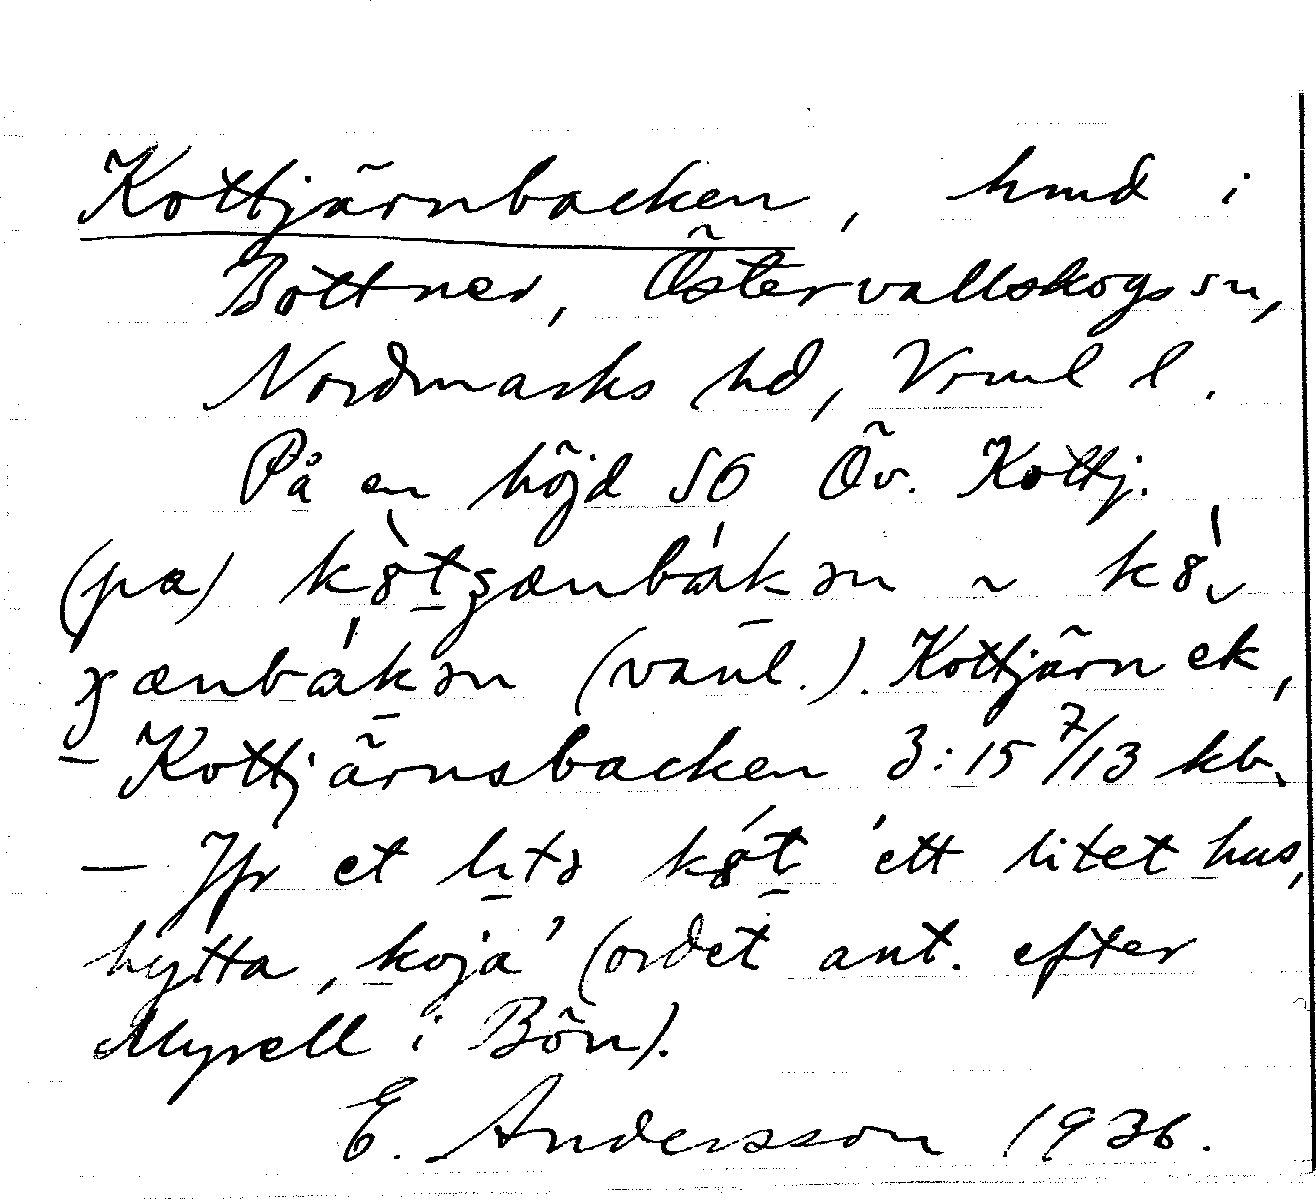 Kottjärnbacken, hmd i
Bottner, Östervallskogs sn,
Nordmarks hd, Vrml l.
På en höjd SO Öv. Kottj.
(pæ)
(vanl.). Kottjärn ek,
– Kottjärnsbacken 3:15 7/13 kb.
– Jfr et kȣt 'ett litet hus,
hytta, koja' (ordet ant. efter
Myrell i Bön).
E. Andersson 1936.